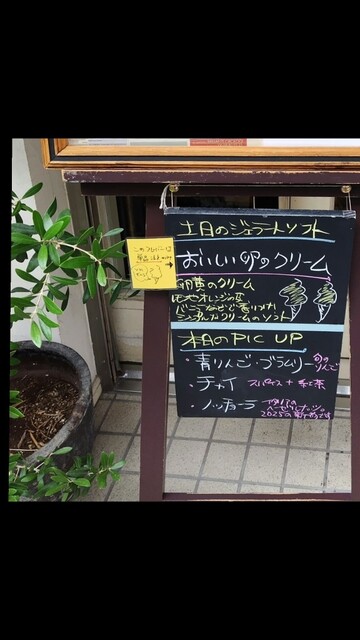 土日のジェラートソフト
おいしい卵のクリーム
卵黄のクリーム
レモンやオレンジの皮
バニラなどで香りづけ
シンプルクリームのソフト
本日のPIC UP
・青りんご・ブラムリー 旬のりんご
・チャイ スパイス+紅茶
・ノッチョーラ
ヘーゼルナッツ。
2025の